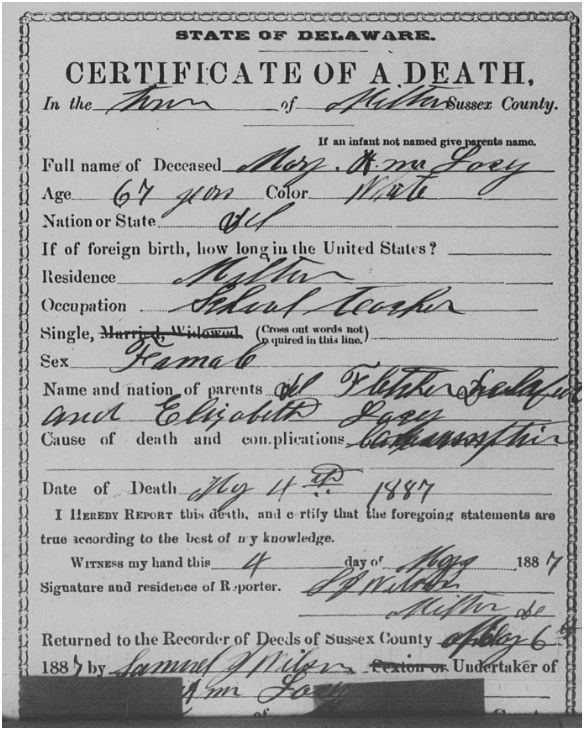 STATE OF DELAWARE.
CERTIFICATE OF A DEATH,
In the Town of Milton Sussex County.
If an infant not named give parents name.
Full name of Deceased Mary. A. Lacy
Age 67 years Color White
Nation or State Del
If of foreign birth, how long in the United States?
Residence Milton
Occupation School teacher
Single, Married, Widowed. (Cross out words not required in this line.)
Sex Female
Name and nation of parents Del Fletcher
and Elizabeth Lacy
Cause of death and complications
Date of Death May 4th 1887
I HEREBY REPORT this death, and certify that the foregoing statements are
true according to the best of my knowledge.
WITNESS my hand this 4 day of May 1887
Signature and residence of Reporter. S J Wilson
Milton De
Returned to the Recorder of Deeds of Sussex County May 6
1887 by Samuel J Wilson Sexton or Undertaker of
Lacy
of County